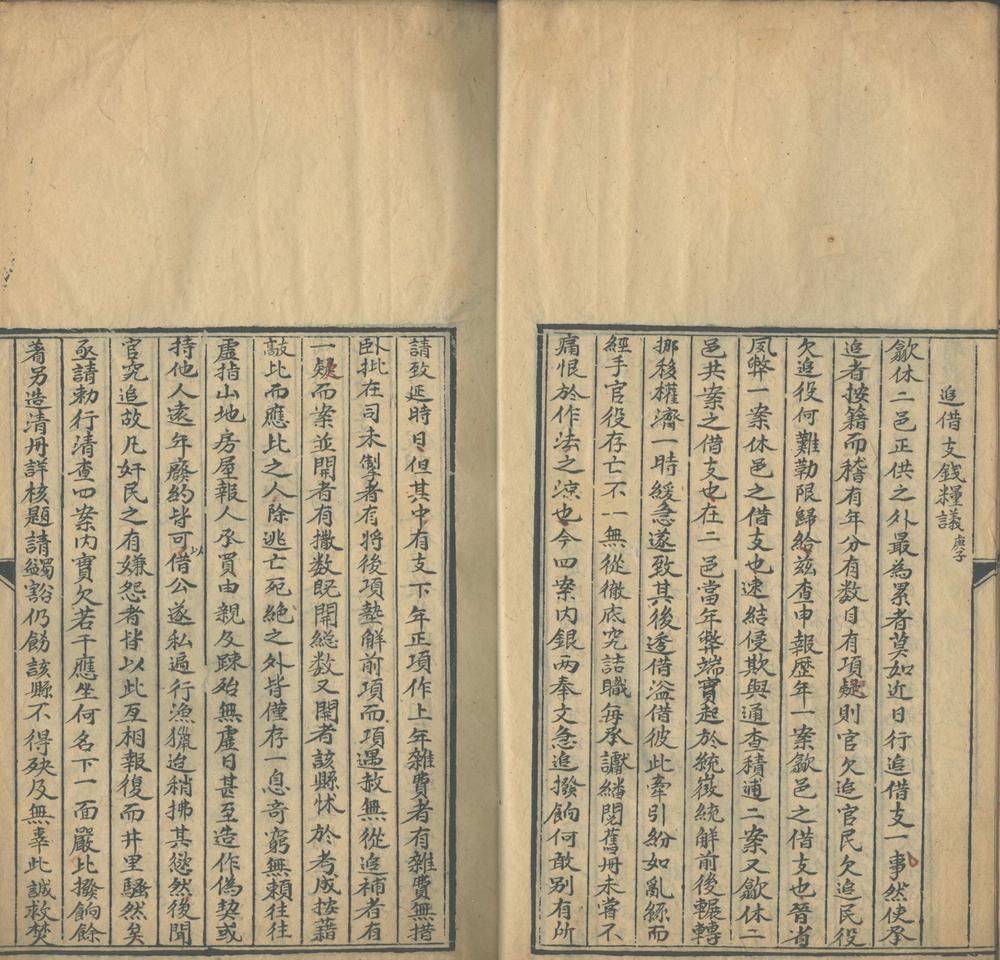 追借支錢糧議庚子
歙休二邑正供之外最為累者莫如近日行追借支一事然使承
追者按籍而稽有年分有數目有項疑則官欠追官民欠追民役
欠追役何難勒限歸給茲查申報歷年一案歙邑之借支也晉省
夙弊一案休邑之借支也逮結侵欺與通查積逋二案又歙休二
邑共案之借支也在二邑當年弊端實起於統徵統解前後輾轉
挪移權濟一時緩急遂致其後透借溢借彼此牽引紛如亂絲而
經手官役存亡不一無從徹底究詰職每承讞繙閱舊冊未嘗不
痛恨於作法之涼也今四案內銀兩奉文急追撥餉何敢別有所
請致延時日但其中有支下年正項作上年雜費者有雜費無措
卧批在司未掣者有將後項墊解前項而項遇赦無從追補者有
一疑而案並開者有撒數既開總數又開者該縣怵於考成按藉
敲比而應比之人除逃亡死絕之外皆僅存一息奇窮無賴往往
虛指山地房屋報人承買由親及踈殆無虛日甚至造作偽契或
持他人遠年癈約皆可以借公遂私遍行漁獵迨稍拂其慾然後聞
官究追故凡奸民之有嫌怨者皆以此互相報復而井里騷然矣
亟請勅行清查四案內實欠若干應坐何名下一面嚴比撥餉餘
着另造清冊詳核題請蠲豁仍飭該縣不得殃及無辜此誠救焚